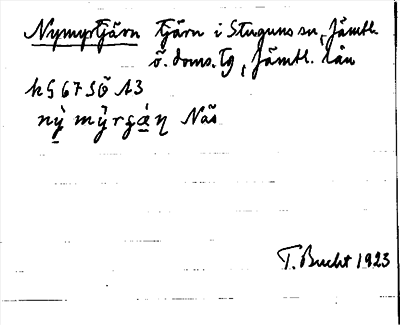 Nymyrtjärn tjärn i Stuguns sn, Jämtl.
ö. doms. tg, Jämtl. län
k 5 67 SÖ A3
nỳ mỳrʂán Näs
T. Bucht 1923